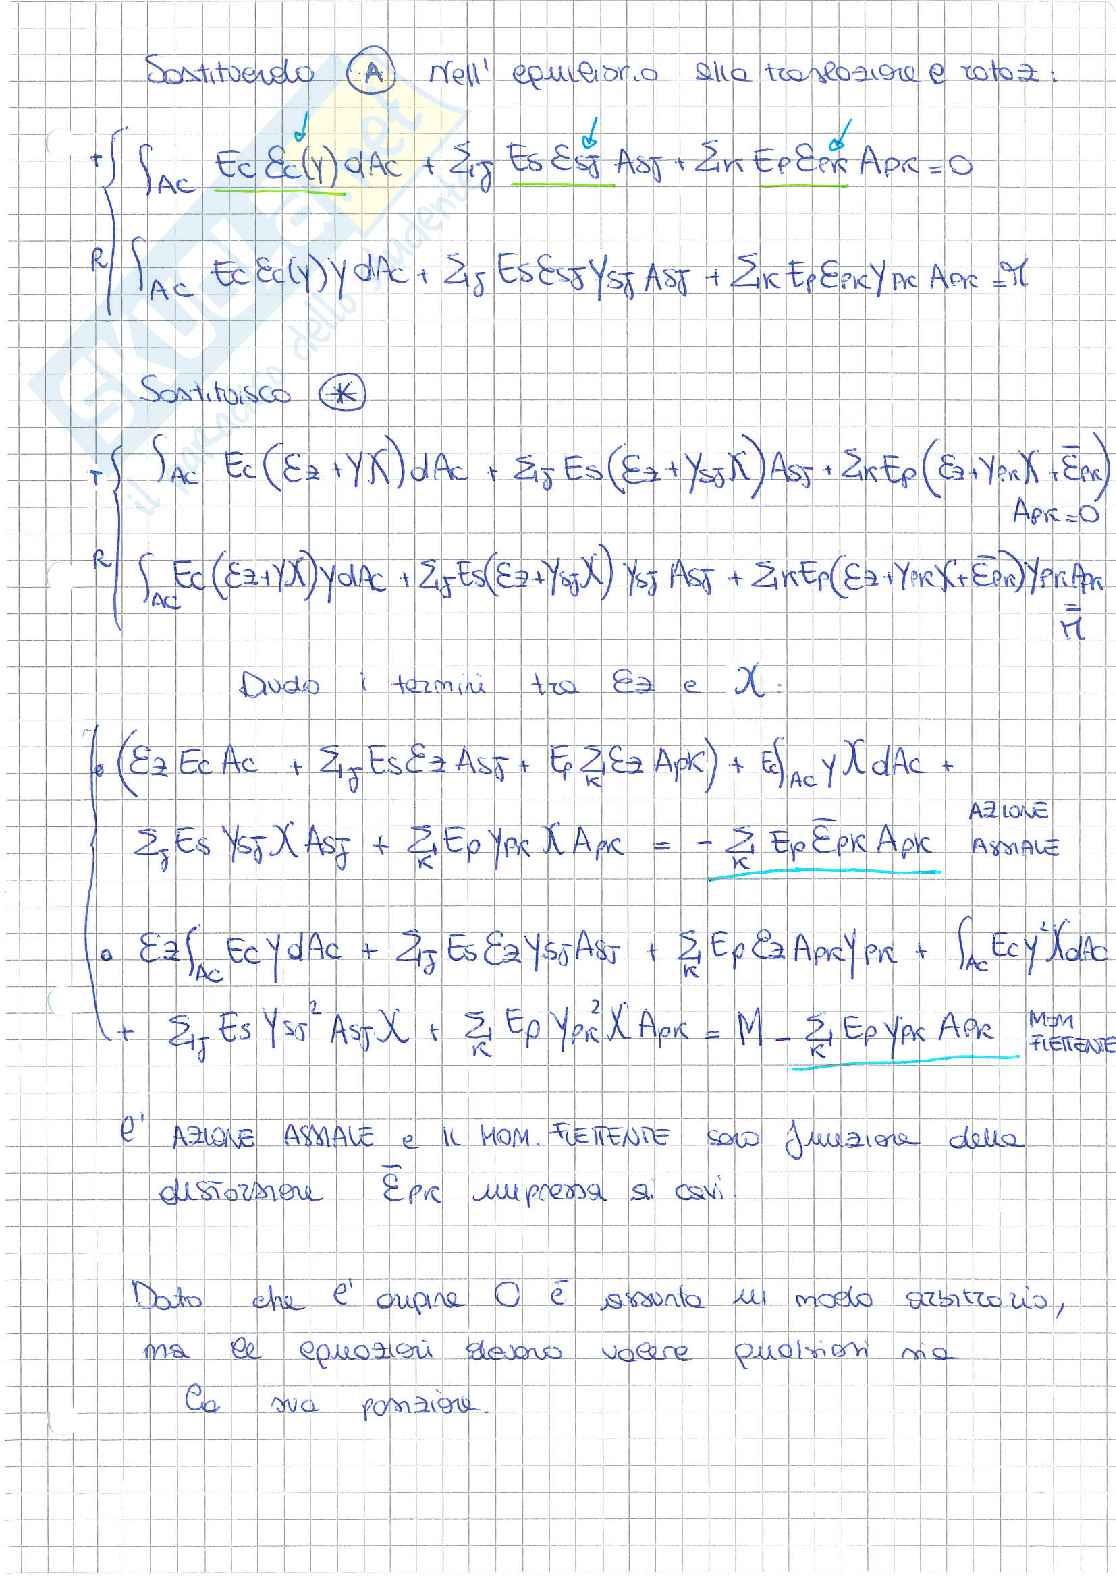 Sostituendo (A) nell'equilibrio alla traslazione e rotaz:
T { ∫Ac Ec εc(y) dAc + Σj Es εsj Asj + Σk Ep εpk Apk = 0
R ∫Ac Ec εc(y) y dAc + Σj Es εsj ysj Asj + Σk Ep εpk ypk Apk = M
Sostituisco (*)
T { ∫Ac Ec (εz + yχ) dAc + Σj Es (εz + ysjχ) Asj + Σk Ep (εz + ypkχ + ε̄pk)
Apk = 0
R ∫Ac Ec (εz + yχ) y dAc + Σj Es (εz + ysjχ) ysj Asj + Σk Ep (εz + ypkχ + ε̄pk) ypk Apk
=
M
Divido i termini tra εz e χ:
(εz Ec Ac + Σj Es εz Asj + Ep Σk εz Apk) + Ec ∫Ac y χ dAc +
Σj Es ysj χ Asj + Σk Ep ypk χ Apk = - Σk Ep ε̄pk Apk AZIONE
ASSIALE
εz ∫Ac Ec y dAc + Σj Es εz ysj Asj + Σk Ep εz Apk ypk + ∫Ac Ec y² χ dAc
+ Σj Es ysj² Asj χ + Σk Ep ypk² χ Apk = M - Σk Ep ypk Apk MOM
FLETTENTE
l' AZIONE ASSIALE e il MOM. FLETTENTE sono funzione della
distorsione ε̄pk impressa ai cavi.
Dato che l'origine O è assunta in modo arbitrario,
ma le equazioni devono valere qualsiasi sia
la sua posizione.
SKUOLA.net
il paradiso dello studente